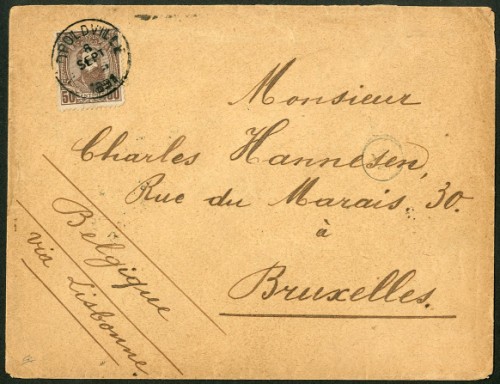 LEOPOLDVILLE
8
SEPT
50
Monsieur
Charles Hannesen,
Rue du Marais. 30.
à
Bruxelles.
Belgique
via Lisbonne.